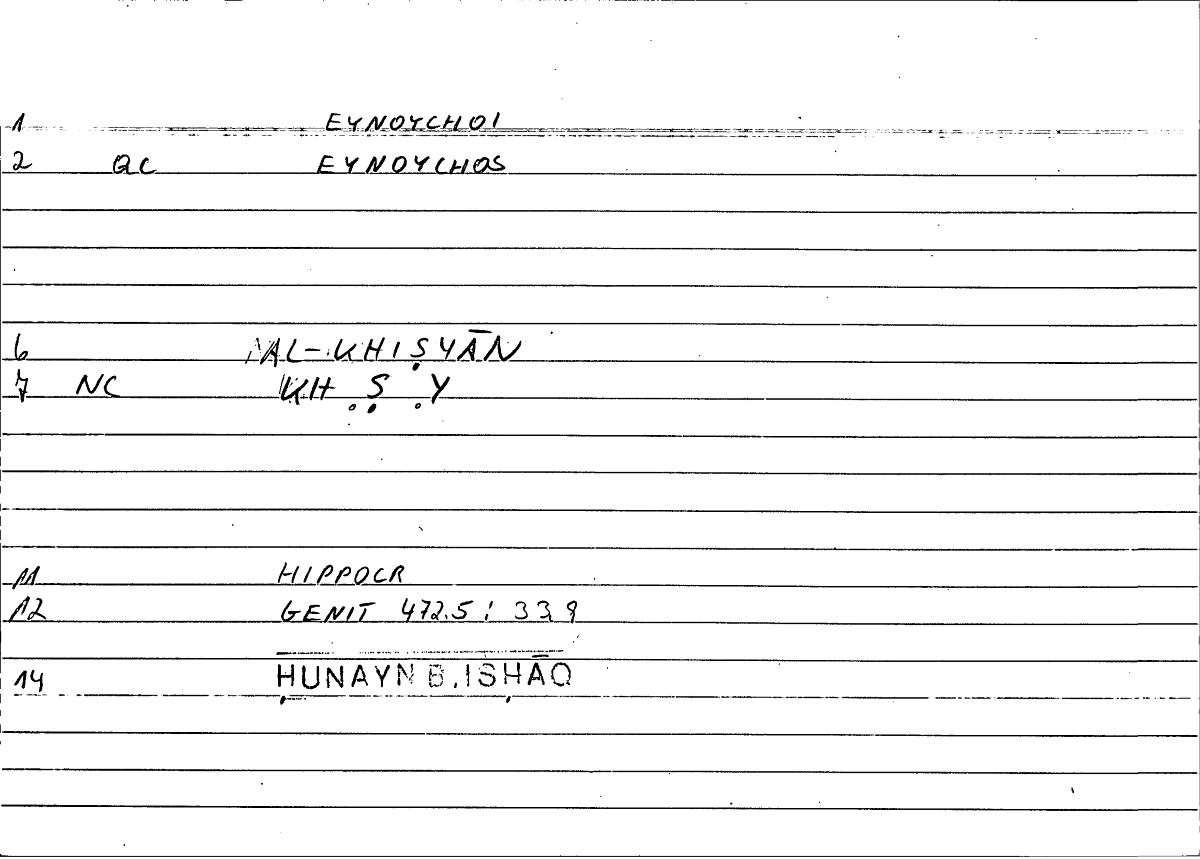 1 EYNOYCHOI
2 QC EYNOYCHOS
6 AL-KHIṢYĀN
7 NC KH Ṣ Y
11 HIPPOCR
12 GENIT 472.5 ; 33,9
14 ḤUNAYN B. ISḤĀQ